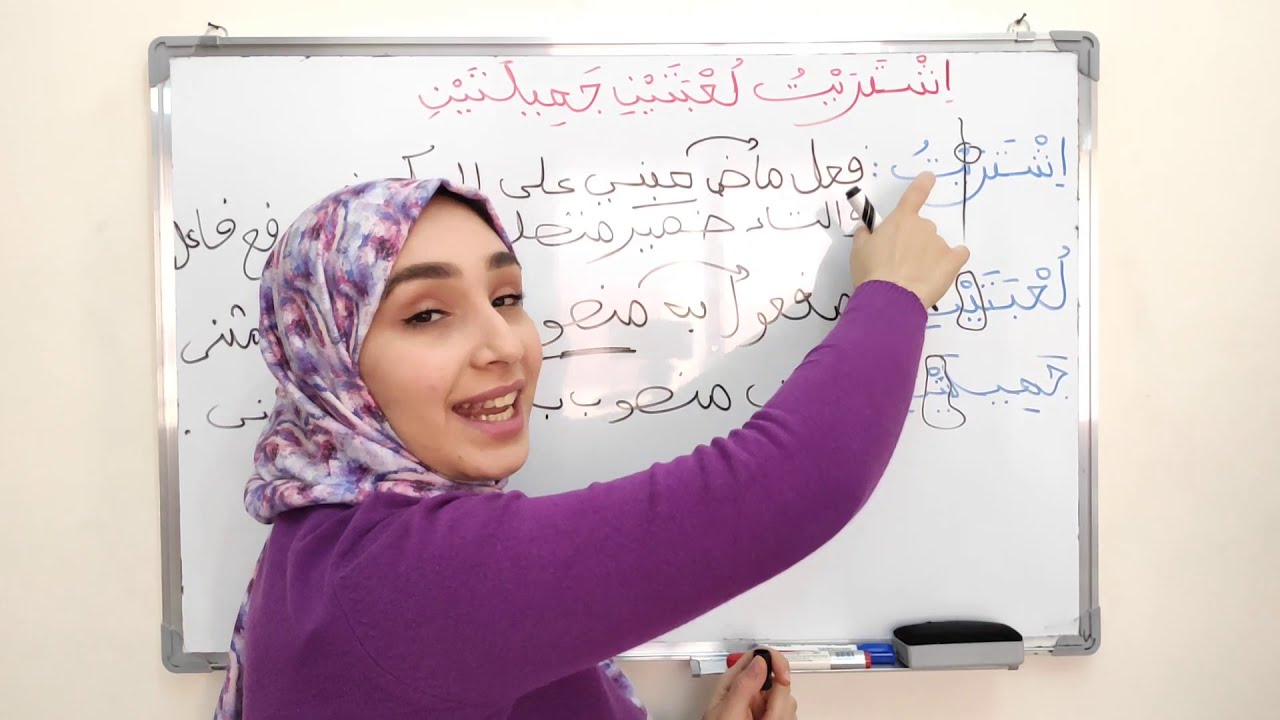 اِشْتَرَيْتُ لُعْبَتَيْنِ جَمِيلَتَيْنِ
اِشْتَرَيْتُ : فعل ماض مبني على
والتاء ضمير متصل فاعل
لُعْبَتَيْنِ مفعول به مثنى
جَمِيلَتَيْنِ منصوب